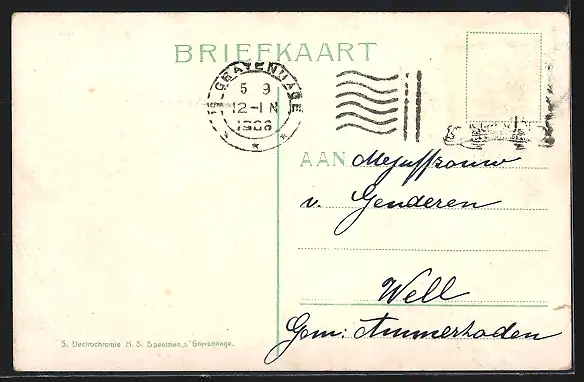 BRIEFKAART
'S-GRAVENHAGE
5 9
12-1N
1908
AAN Mejuffrouw
v. Genderen
Well
Gem: Ammerzoden
5. Electrochromie N. S. Speelman, s'Gravenhage.